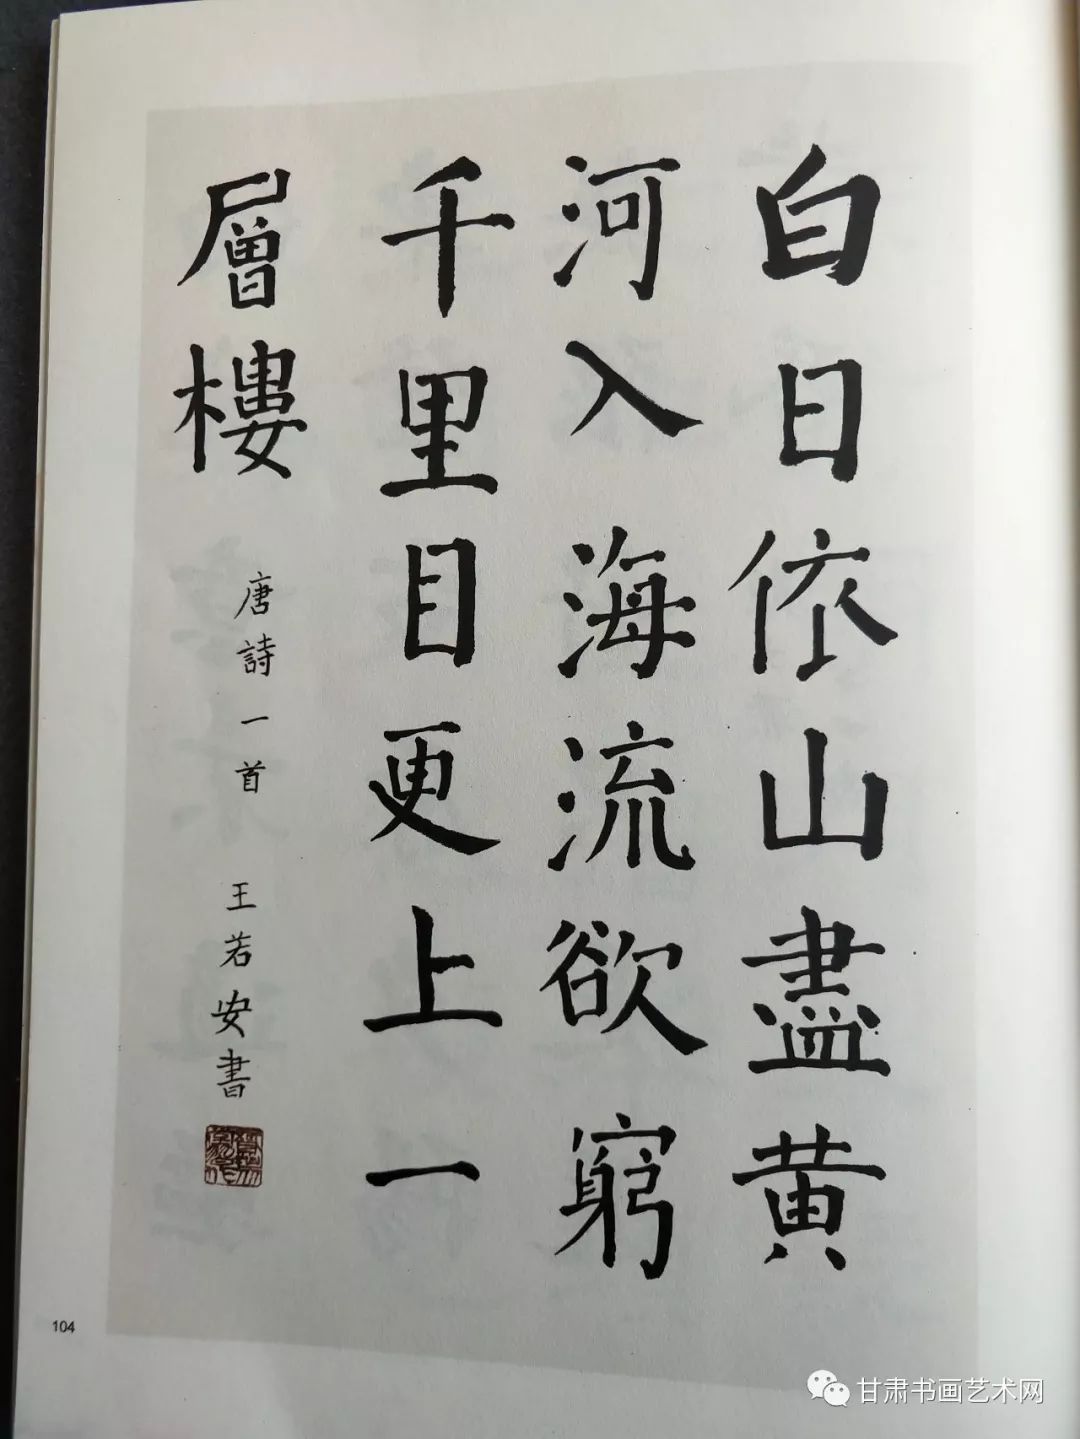 白日依山盡黄
河入海流欲窮
千里目更上一
層樓
唐詩一首
王若安書
104
甘肃书画艺术网